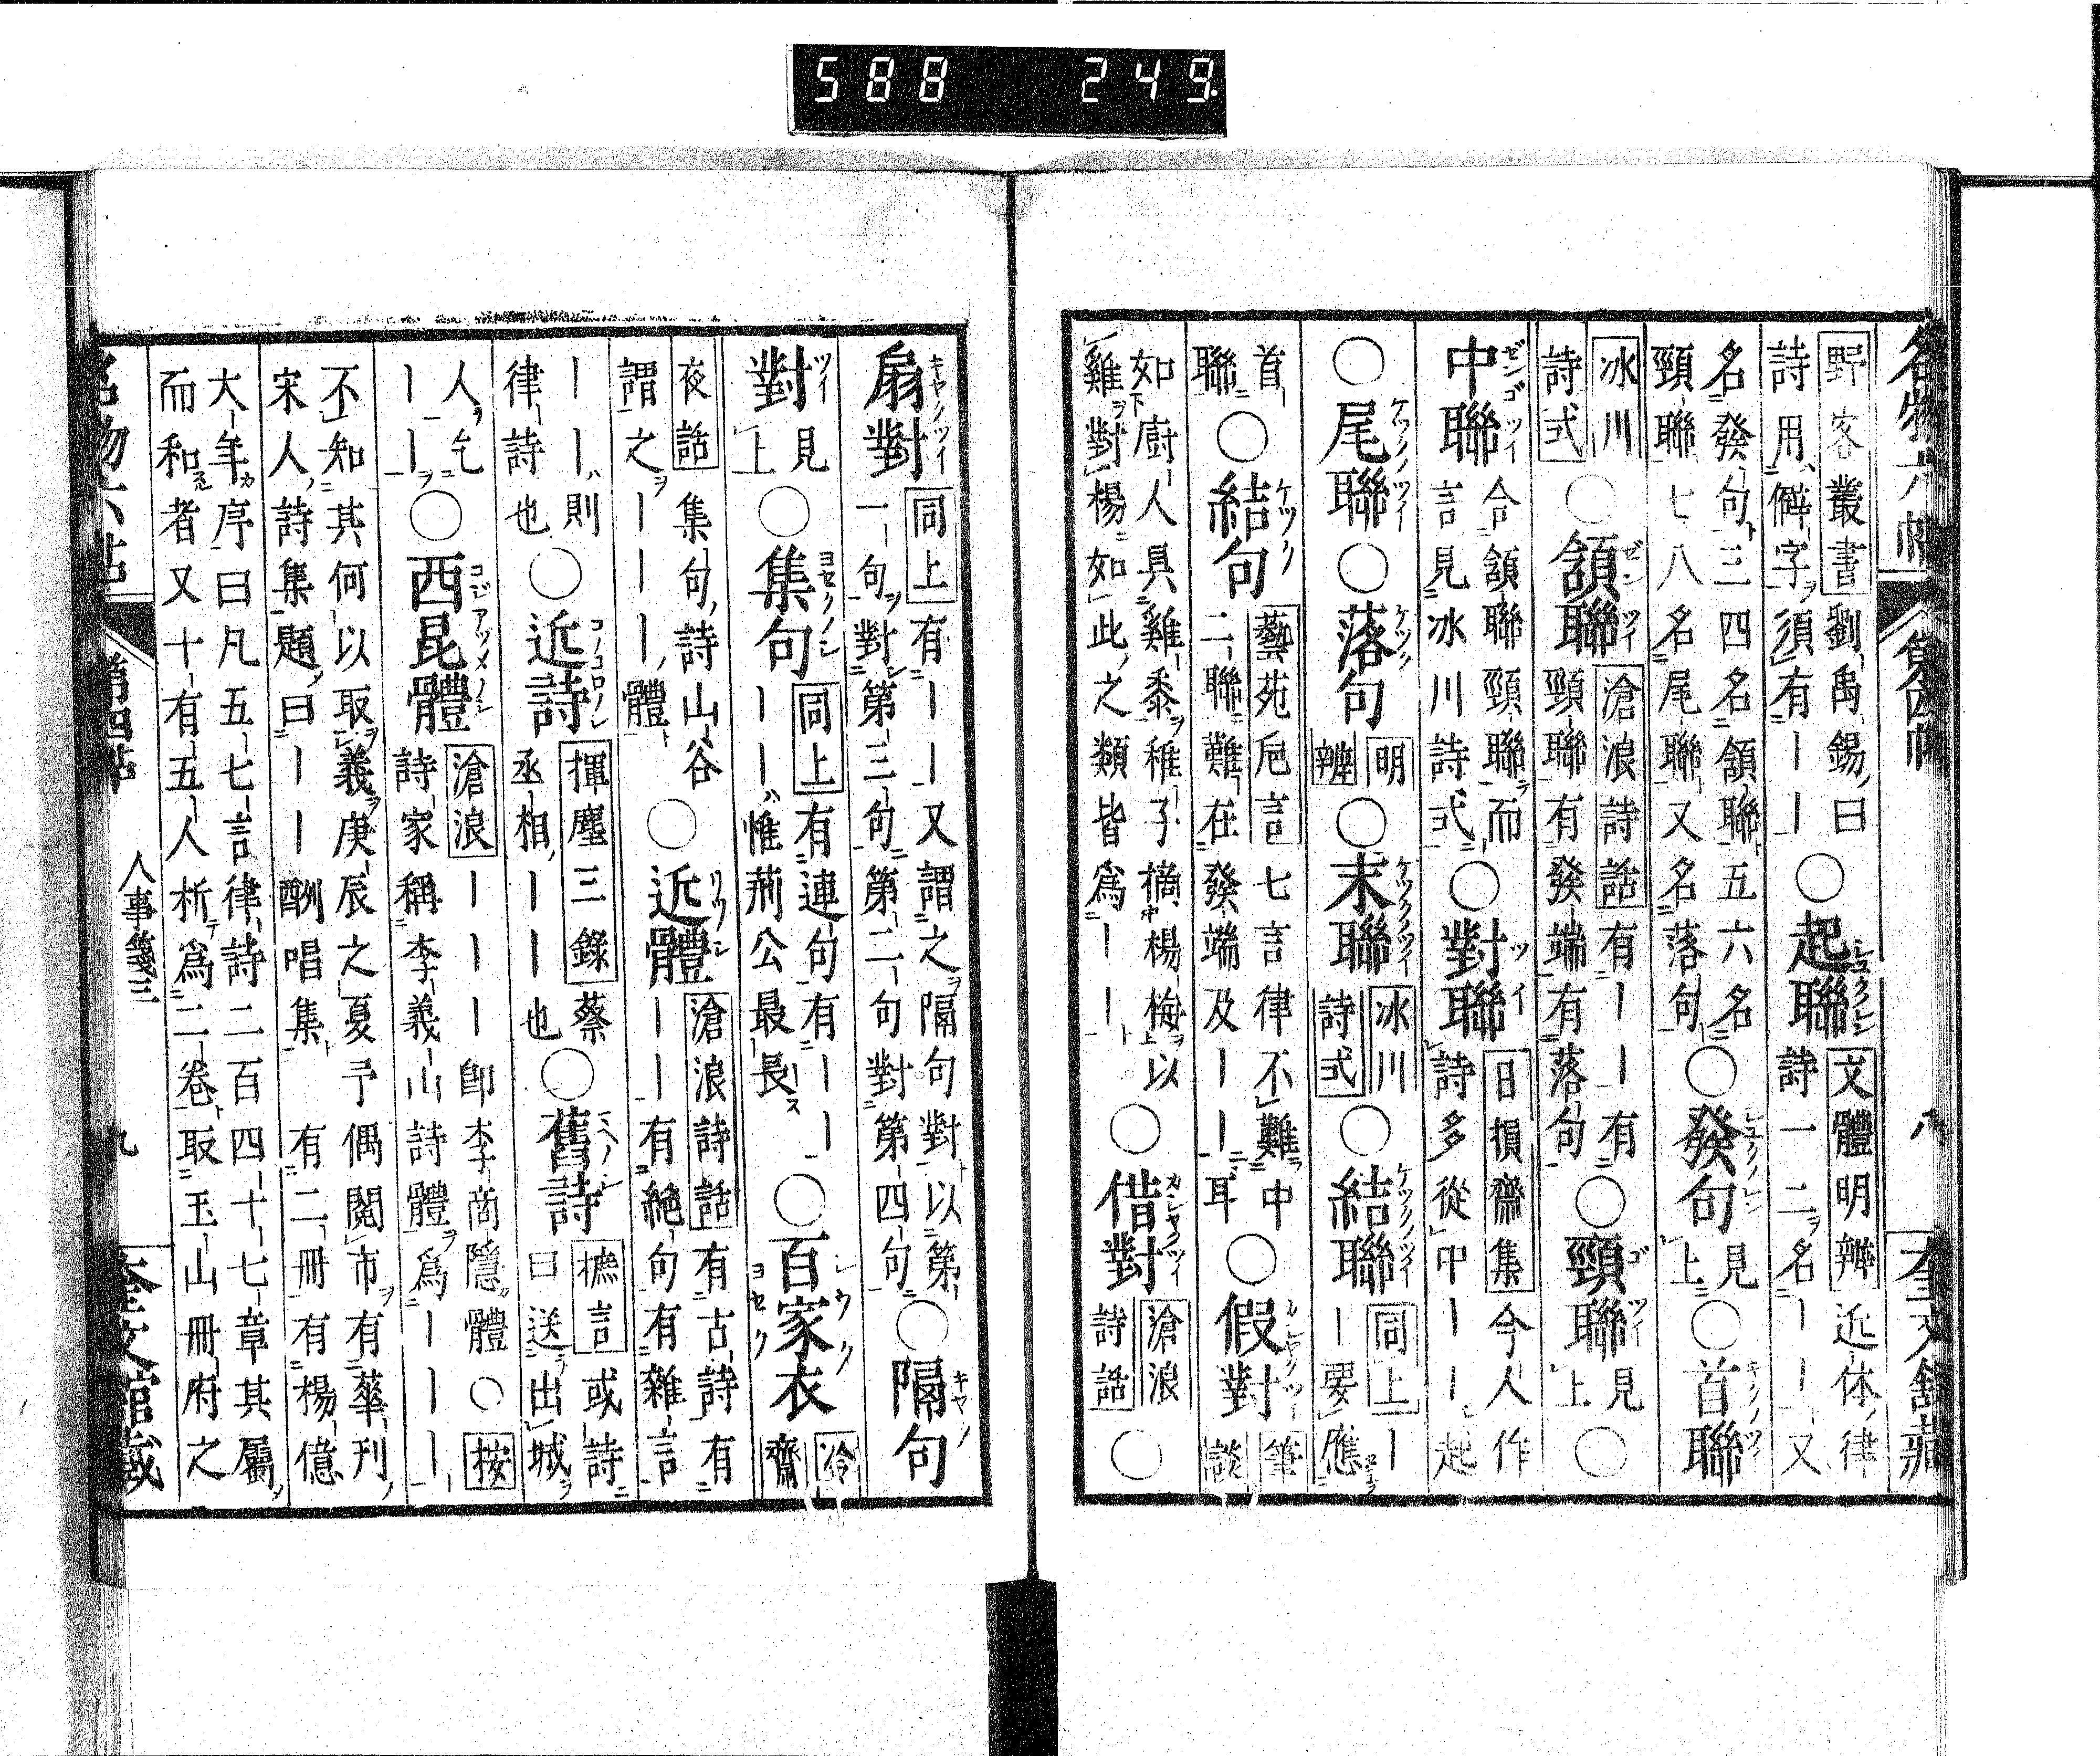 名物六帖 第四帖 八 奎文館藏
野客叢書劉禹錫曰詩用僻字須有——○起聯文體明辨近体律詩一二名——又
名發句三四名頷聯五六名頸聯七八名尾聯又名落句○發句見上○首聯
冰川詩式○頷聯滄浪詩話有——有頸聯有發端有落句○頸聯見上○
中聯合頷聯頸聯而言見冰川詩式○對聯日損齋集今人作詩多從中——起
○尾聯○落句明辨○末聯冰川詩式○結聯同上——要應
首聯○結句藝苑巵言七言律不難中二聯難在發端及——耳○假對筆談
如廚人具雞黍稚子摘楊梅以雞對楊如此之類皆爲——○借對滄浪詩話○
扇對同上有——又謂之隔句對以第一句對第三句第二句對第四句○隔句
對見上○集句同上有連句有————惟荊公最長○百家衣冷齋
夜話集句詩山谷謂之———體○近體滄浪詩話有古詩有——有絕句有雜言
——則律詩也○近詩揮麈三錄蔡丞相——也○舊詩摭言或詩曰送出城
人乞——○西崑體滄浪———卽李商隱體○按詩家稱李義山詩體爲———
不知其何以取義庚辰之夏予偶閱市有華刊宋人詩集題曰——酬唱集有二冊有楊億
大年序曰凡五七言律詩二百四十七章其屬而和者又十有五人析爲二卷取玉山冊府之
名物六帖 第四帖 人事箋三 九 奎文館藏
588 249